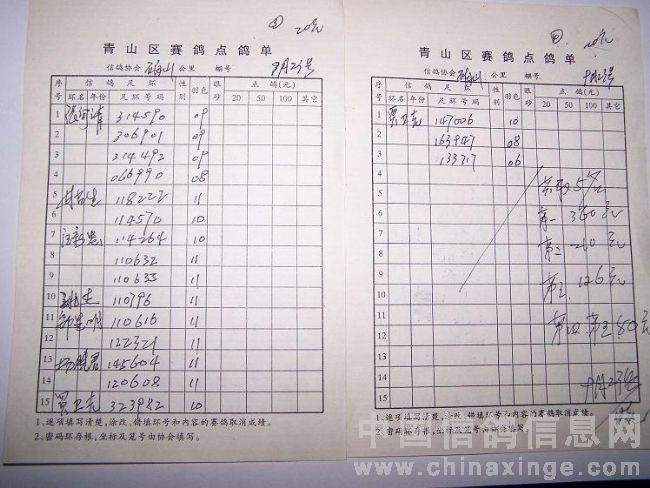 20元
青山区赛鸽点鸽单
信鸽协会 公里 棚号 9月23号
序号 信鸽足环 性别 羽色 眼砂 点鸽(元)
环名 年份 足环号码 20 50 100 其它
1 314590 09
2 306901 09
3 314492 09
4 066990 08
5 118222 11
6 114570 10
7 114264 10
8 110632 11
9 110633 11
10 110796 11
11 110616 11
12 122321 11
13 145604 11
14 120608 11
15 贾卫克 323982 10
1、逐项填写清楚,涂改、错填环号和内容的赛鸽取消成绩。
2、密码环存根,坐标及笼号由协会填写。
20元
青山区赛鸽点鸽单
信鸽协会 公里 棚号 9月23号
序号 信鸽足环 性别 羽色 眼砂 点鸽(元)
环名 年份 足环号码 20 50 100 其它
1 贾卫克 147006 10
2 163947 08
3 133717 06
4 共取5名
5
6 第一 360元
7
8 第二 210元
9
10 第三 126元
11
12 第四、第五 80元
13
14 9月23号
15
1、逐项填写清楚,涂改、错填环号和内容的赛鸽取消成绩。
2、密码环存根,坐标及笼号由协会填写。
中国信鸽信息网
www.chinaxinge.com